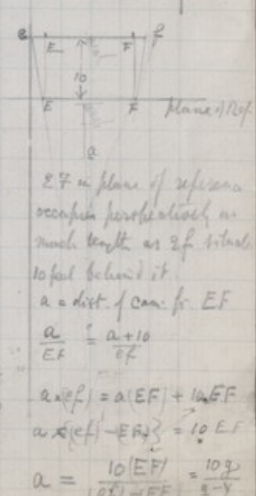 e E F f
10
E F Plane of Ref.
a
EF in plane of reference
occupies perspectively as
much length as ef situate
10 feet behind it.
a = dist. of cam. fr. EF
a/EF = a+10/ef
a(ef) = a(EF) + 10.EF
a × {(ef) - EF} = 10 EF
a = 10(EF)/(ef)-(EF) = 10